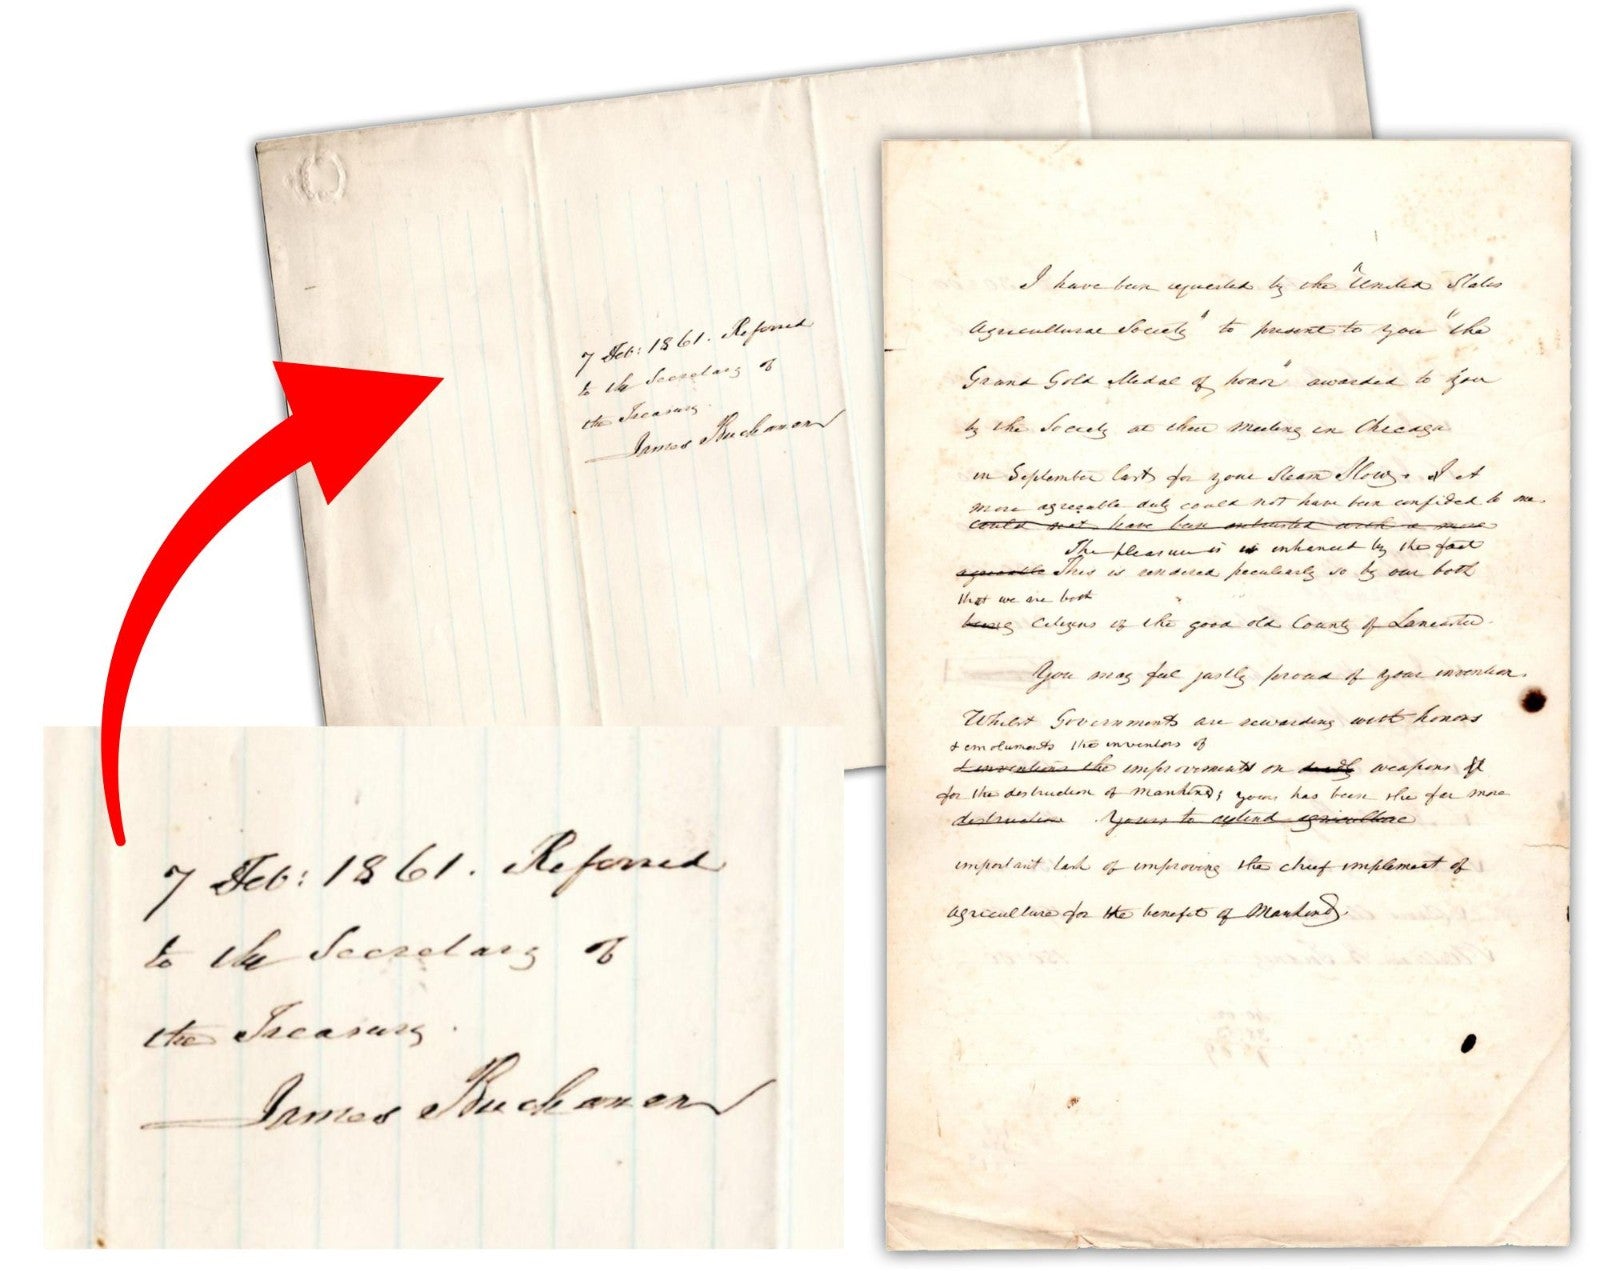 7 Feb: 1861. Referred
to the Secretary of
the Treasury.
James Buchanan
7 Feb: 1861. Referred
to the Secretary of
the Treasury.
James Buchanan
I have been requested by the "United States
Agricultural Society" to present to you "the
Grand Gold Medal of honor" awarded to you
by the Society at their meeting in Chicago
in September last for your Steam Plow. A
more agreeable duty could not have been confided to me.
could not have been entrusted with a more
The pleasure is inhanced by the fact
agreeable This is rendered peculiarly so by our both
that we are both
being citizens of the good old County of Lancaster.
You may feel justly proud of your invention.
Whilst Governments are rewarding with honors
& emoluments the inventors of
& inventions the improvements on deadly weapons
for the destruction of Mankind; yours has been the far more
destruction. Yours to extend agriculture
important task of improving the chief implement of
agriculture for the benefit of Mankind.